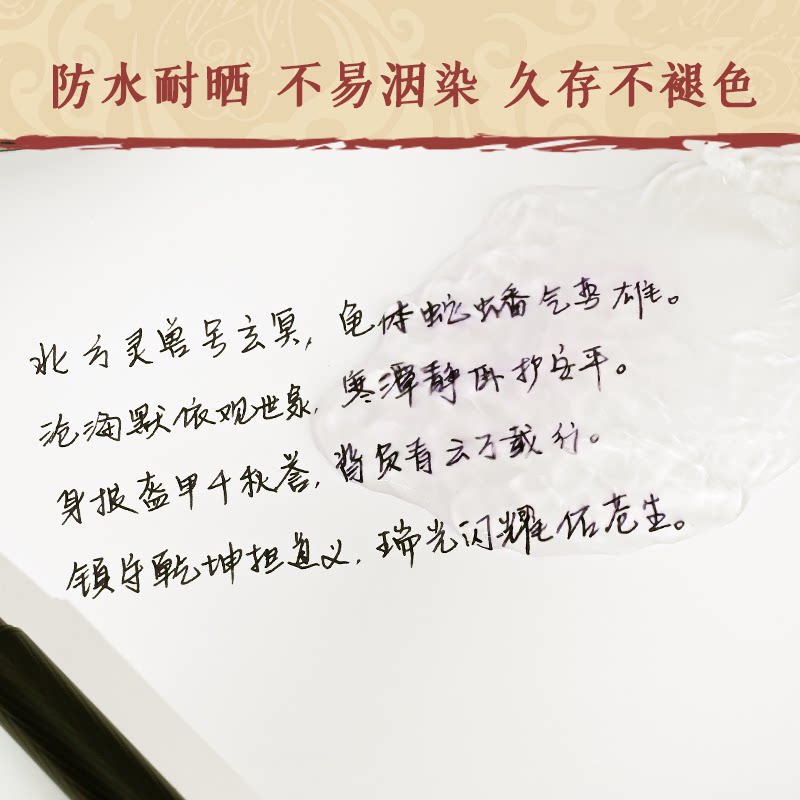 防水耐晒 不易洇染 久存不褪色
北方灵兽号玄冥，龟体蛇蟠气势雄。
沧海默依观世象，寒潭静卧护安平。
身披盔甲千秋誉，背负青云万载行。
镇守乾坤担道义，瑞光闪耀佑苍生。